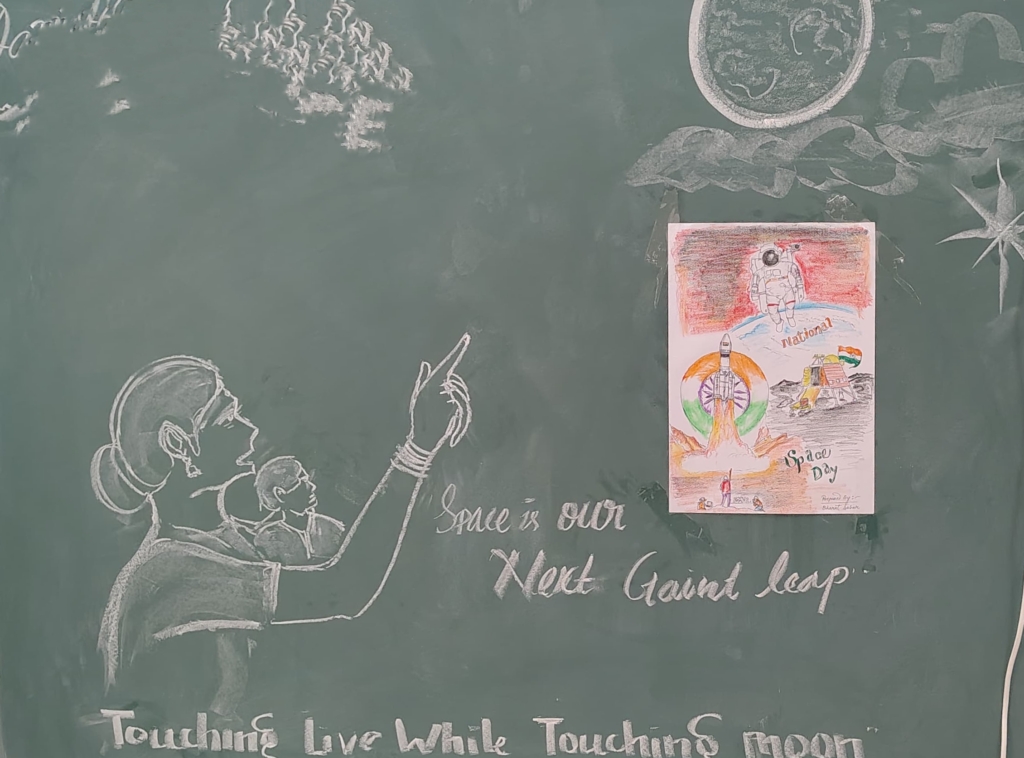 National
Space
Day
Prepared By :-
Space is our
Next Gaint leap
Touching Live While Touching moon"